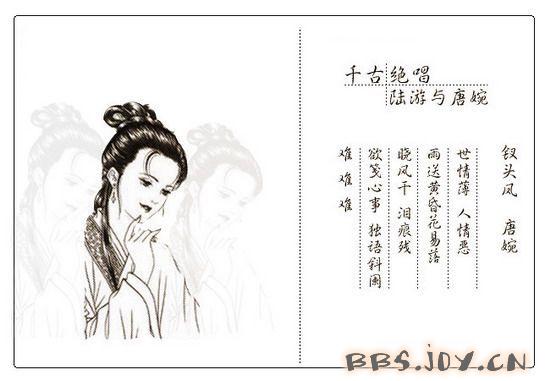 千古绝唱
陆游与唐婉
钗头凤 唐婉
世情薄 人情恶
雨送黄昏花易落
晓风干 泪痕残
欲笺心事 独语斜阑
难 难 难
BBS.JOY.CN